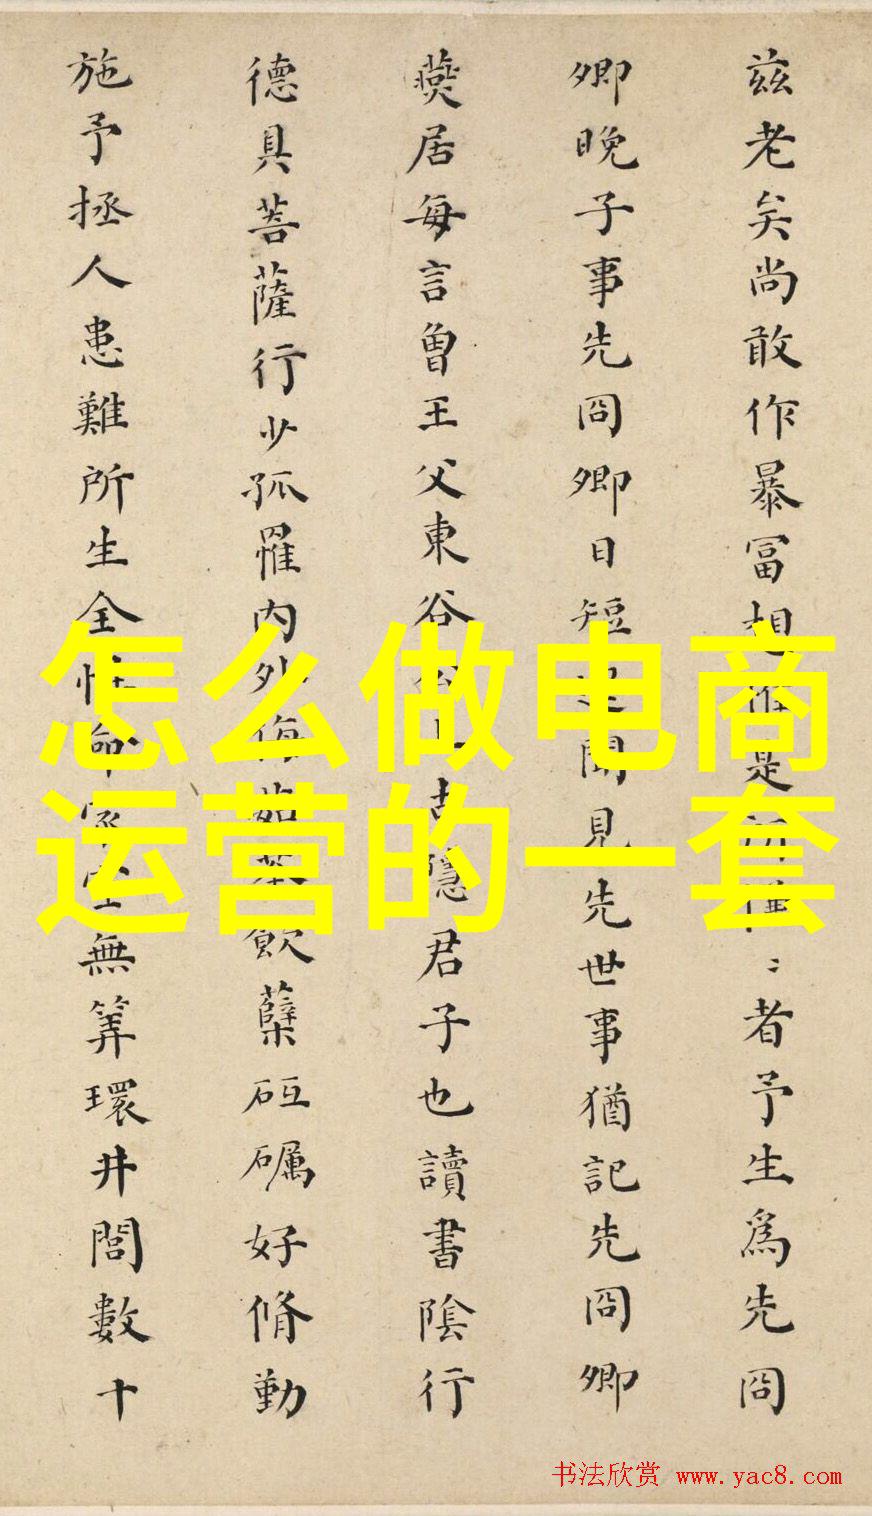 兹老矣尚敢作暴富想惟是所懼〻者予生爲先冏
卿晚子事先冏卿日短見先世事猶記先冏卿
燕居每言曾王父東谷隱君子也讀書陰行
德具菩薩行少孤罹内外侮茹荼飲蘖砥礪好脩勤
施予拯人患難所生全性命無筭環井閭數十
怎么做电商
运营的一套
书法欣赏 www.yac8.com